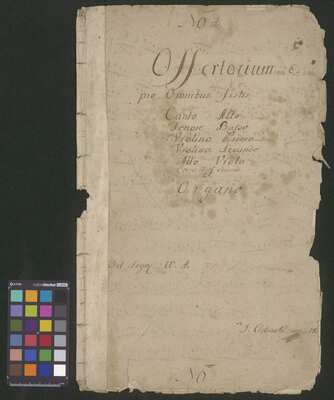 No
Offertorium
pro Omnibus Festis
Canto Alto
Tenore Basso
Violino Primo
Violino Secondo
Alto Viola
Organo
Del Sigr W. A.
No